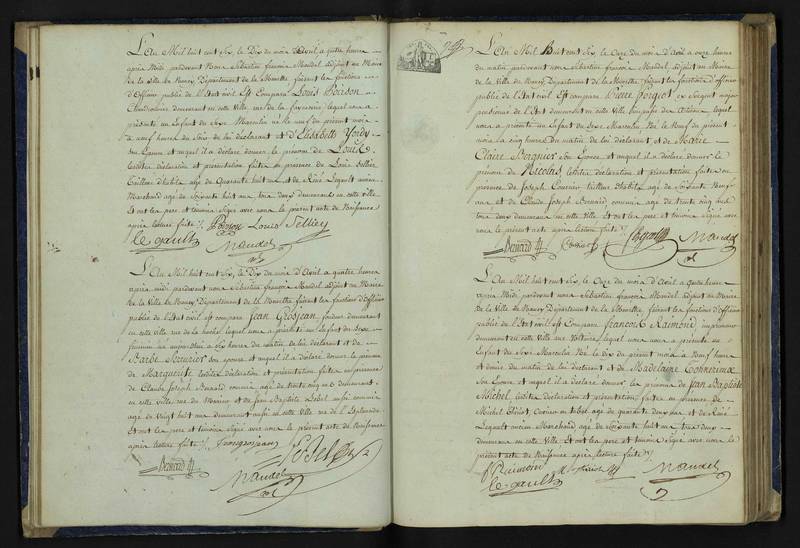 L'An Mil huit cent Six, le Dix du mois d'Avril a quatre heures
après Midi pardevant Nous Sébastien françois Mandel adjoint au Maire
de la Ville de Nancy, Département de la Meurthe faisant les fonctions
d'Officier public de l'Etat civil Est Comparu Louis Poirson
demeurant en cette Ville rue de lequel nous a
présenté un Enfant du Sexe Masculin né le neuf du présent mois
a neuf heures du Soir de lui déclarant et d'Elisabette
Son Epouse et auquel il a déclaré donner le prénom de Louis
lesdites déclaration et présentation faites en présence de Louis Tellier
Tailleur d'habits agé de Quarante huit ans et de René Legault ancien
Marchand agé de Soixante huit ans tous deux demeurans en cette ville
Et ont les pere et témoins Signé avec nous le présent acte de Naissance
après lecture faite ./.
Poirson Louis Tellier
le gault
Mandel
L'An Mil huit cent Six, le Dix du mois d'Avril a quatre heures
après midi pardevant nous Sébastien françois Mandel adjoint au Maire
de la Ville de Nancy, Département de la Meurthe faisant les fonctions d'Officier
public de l'Etat civil Est comparu Jean Grosjean demeurant
en cette ville rue de lequel nous a présenté un Enfant du Sexe
féminin né aujourd'hui a Six heures du matin de lui déclarant et de
Barbe son epouse et auquel il a déclaré donner le prénom
de Marguerite lesdites déclaration et présentation faites en présence
de Claude Joseph Benard commis agé de trente cinq ans demeurant
en cette ville rue du et de Jean Baptiste commis
agé de Vingt huit ans demeurant aussi en cette ville rue de l'Esplanade
Et ont les pere et témoins Signé avec nous le présent acte de Naissance
après lecture faite ./. Jeangrosjean
Benard
Mandel
L'An Mil Huit cent Six, le Onze du mois d'Avril a onze heures
du matin pardevant nous Sébastien françois Mandel, adjoint au Maire
de la Ville de Nancy, Département de la Meurthe faisant les fonctions d'officier
public de l'Etat civil Est comparu Pierre ex Sergent major
pensionné de l'Etat demeurant en cette Ville lequel
nous a présenté un Enfant du Sexe Masculin Né le Neuf du présent
mois a cinq heures du matin de lui déclarant, et de Marie
Claire Bergnier Son Epouse et auquel il a déclaré donner le
prénom de Nicolas lesdites déclaration et présentation faites en
présence de Joseph tailleur d'habits agé de Soixante Neuf
ans et de Claude Joseph Benard, commis agé de trente cinq ans
tous deux demeurans en cette Ville Et ont les pere et témoins signé avec
nous le présent acte après lecture faite ./.
Benard
Mandel
L'An Mil huit cent Six, le Onze du mois d'Avril a quatre heures
après Midi pardevant nous Sébastien françois Mandel, adjoint au Maire
de la Ville de Nancy, Département de la Meurthe faisant les fonctions d'Officier
public de l'Etat civil Est Comparu François Raimond, imprimeur
demeurant en cette Ville rue Voltaire, lequel nous a présenté un
Enfant du Sexe Masculin Né le Dix du présent mois a Neuf heures
et demie du matin de lui déclarant et de Madelaine
Son Epouse et auquel il a déclaré donner les prénoms de Jean Baptiste
Michel, lesdites déclaration et présentation faites en présence de
Michel agé de quarante deux ans et de René
Legault ancien Marchand agé de Soixante huit ans tous deux
demeurans en cette Ville Et ont les pere et témoins Signé avec nous le
présent acte de Naissance après lecture faite ./.
f Raimond
le gault
Mandel